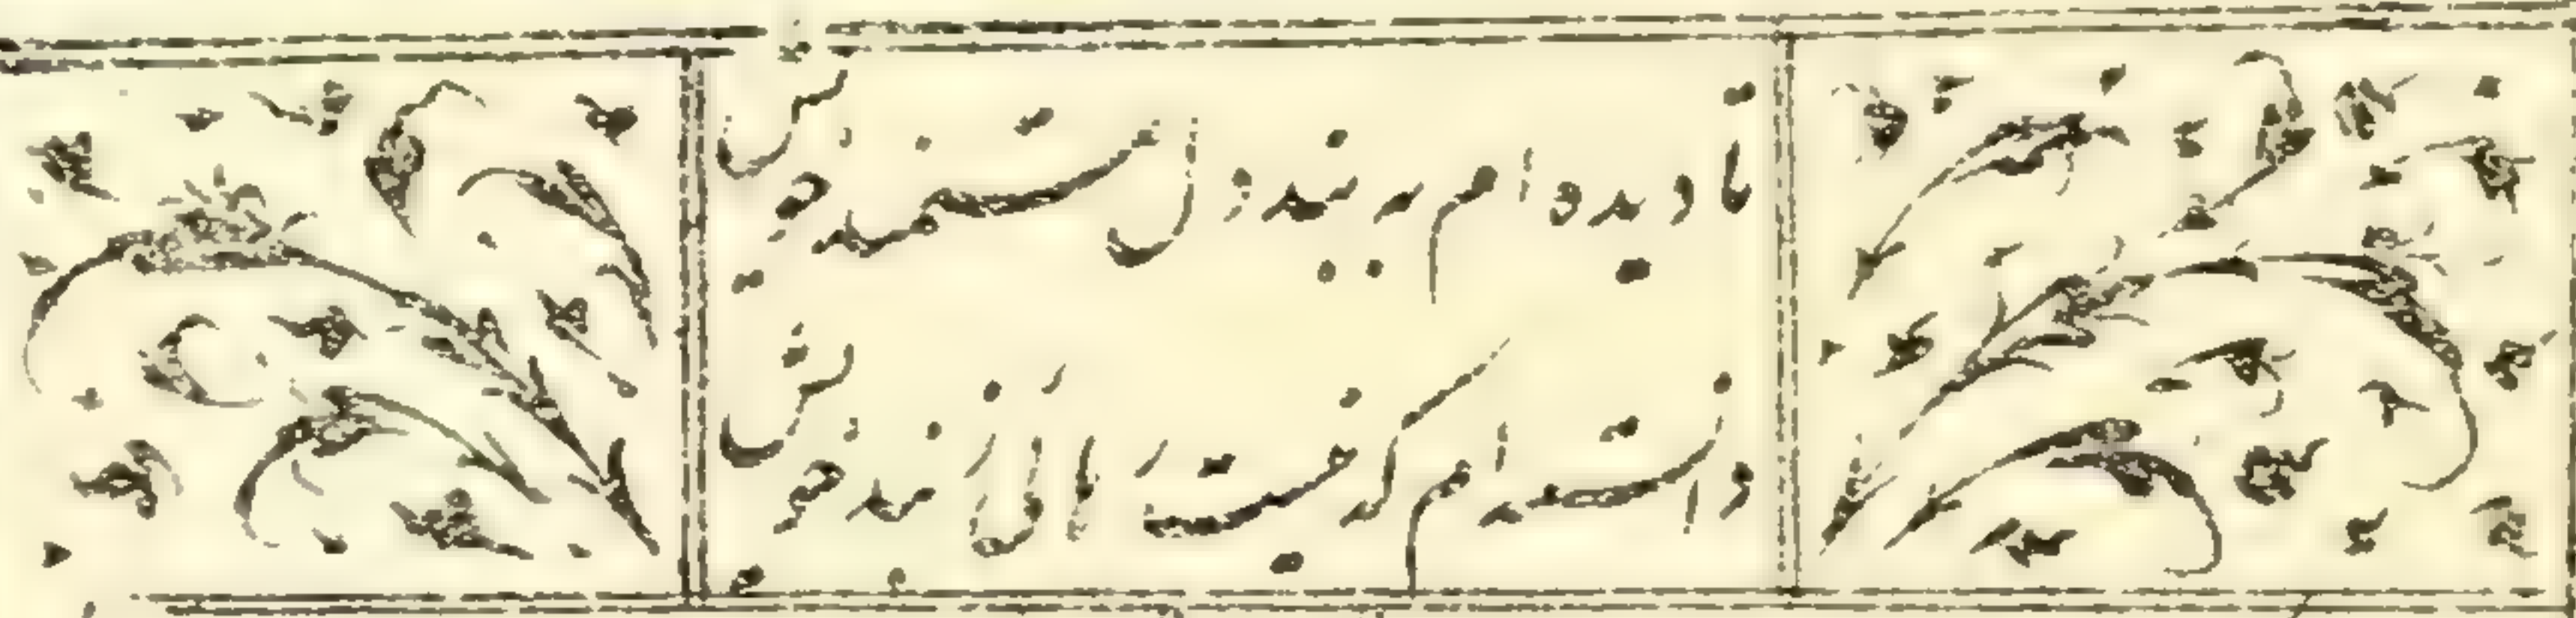 تا دیده ام ببند دل مستمند خویش
دانسته ام که نیست بند خویش